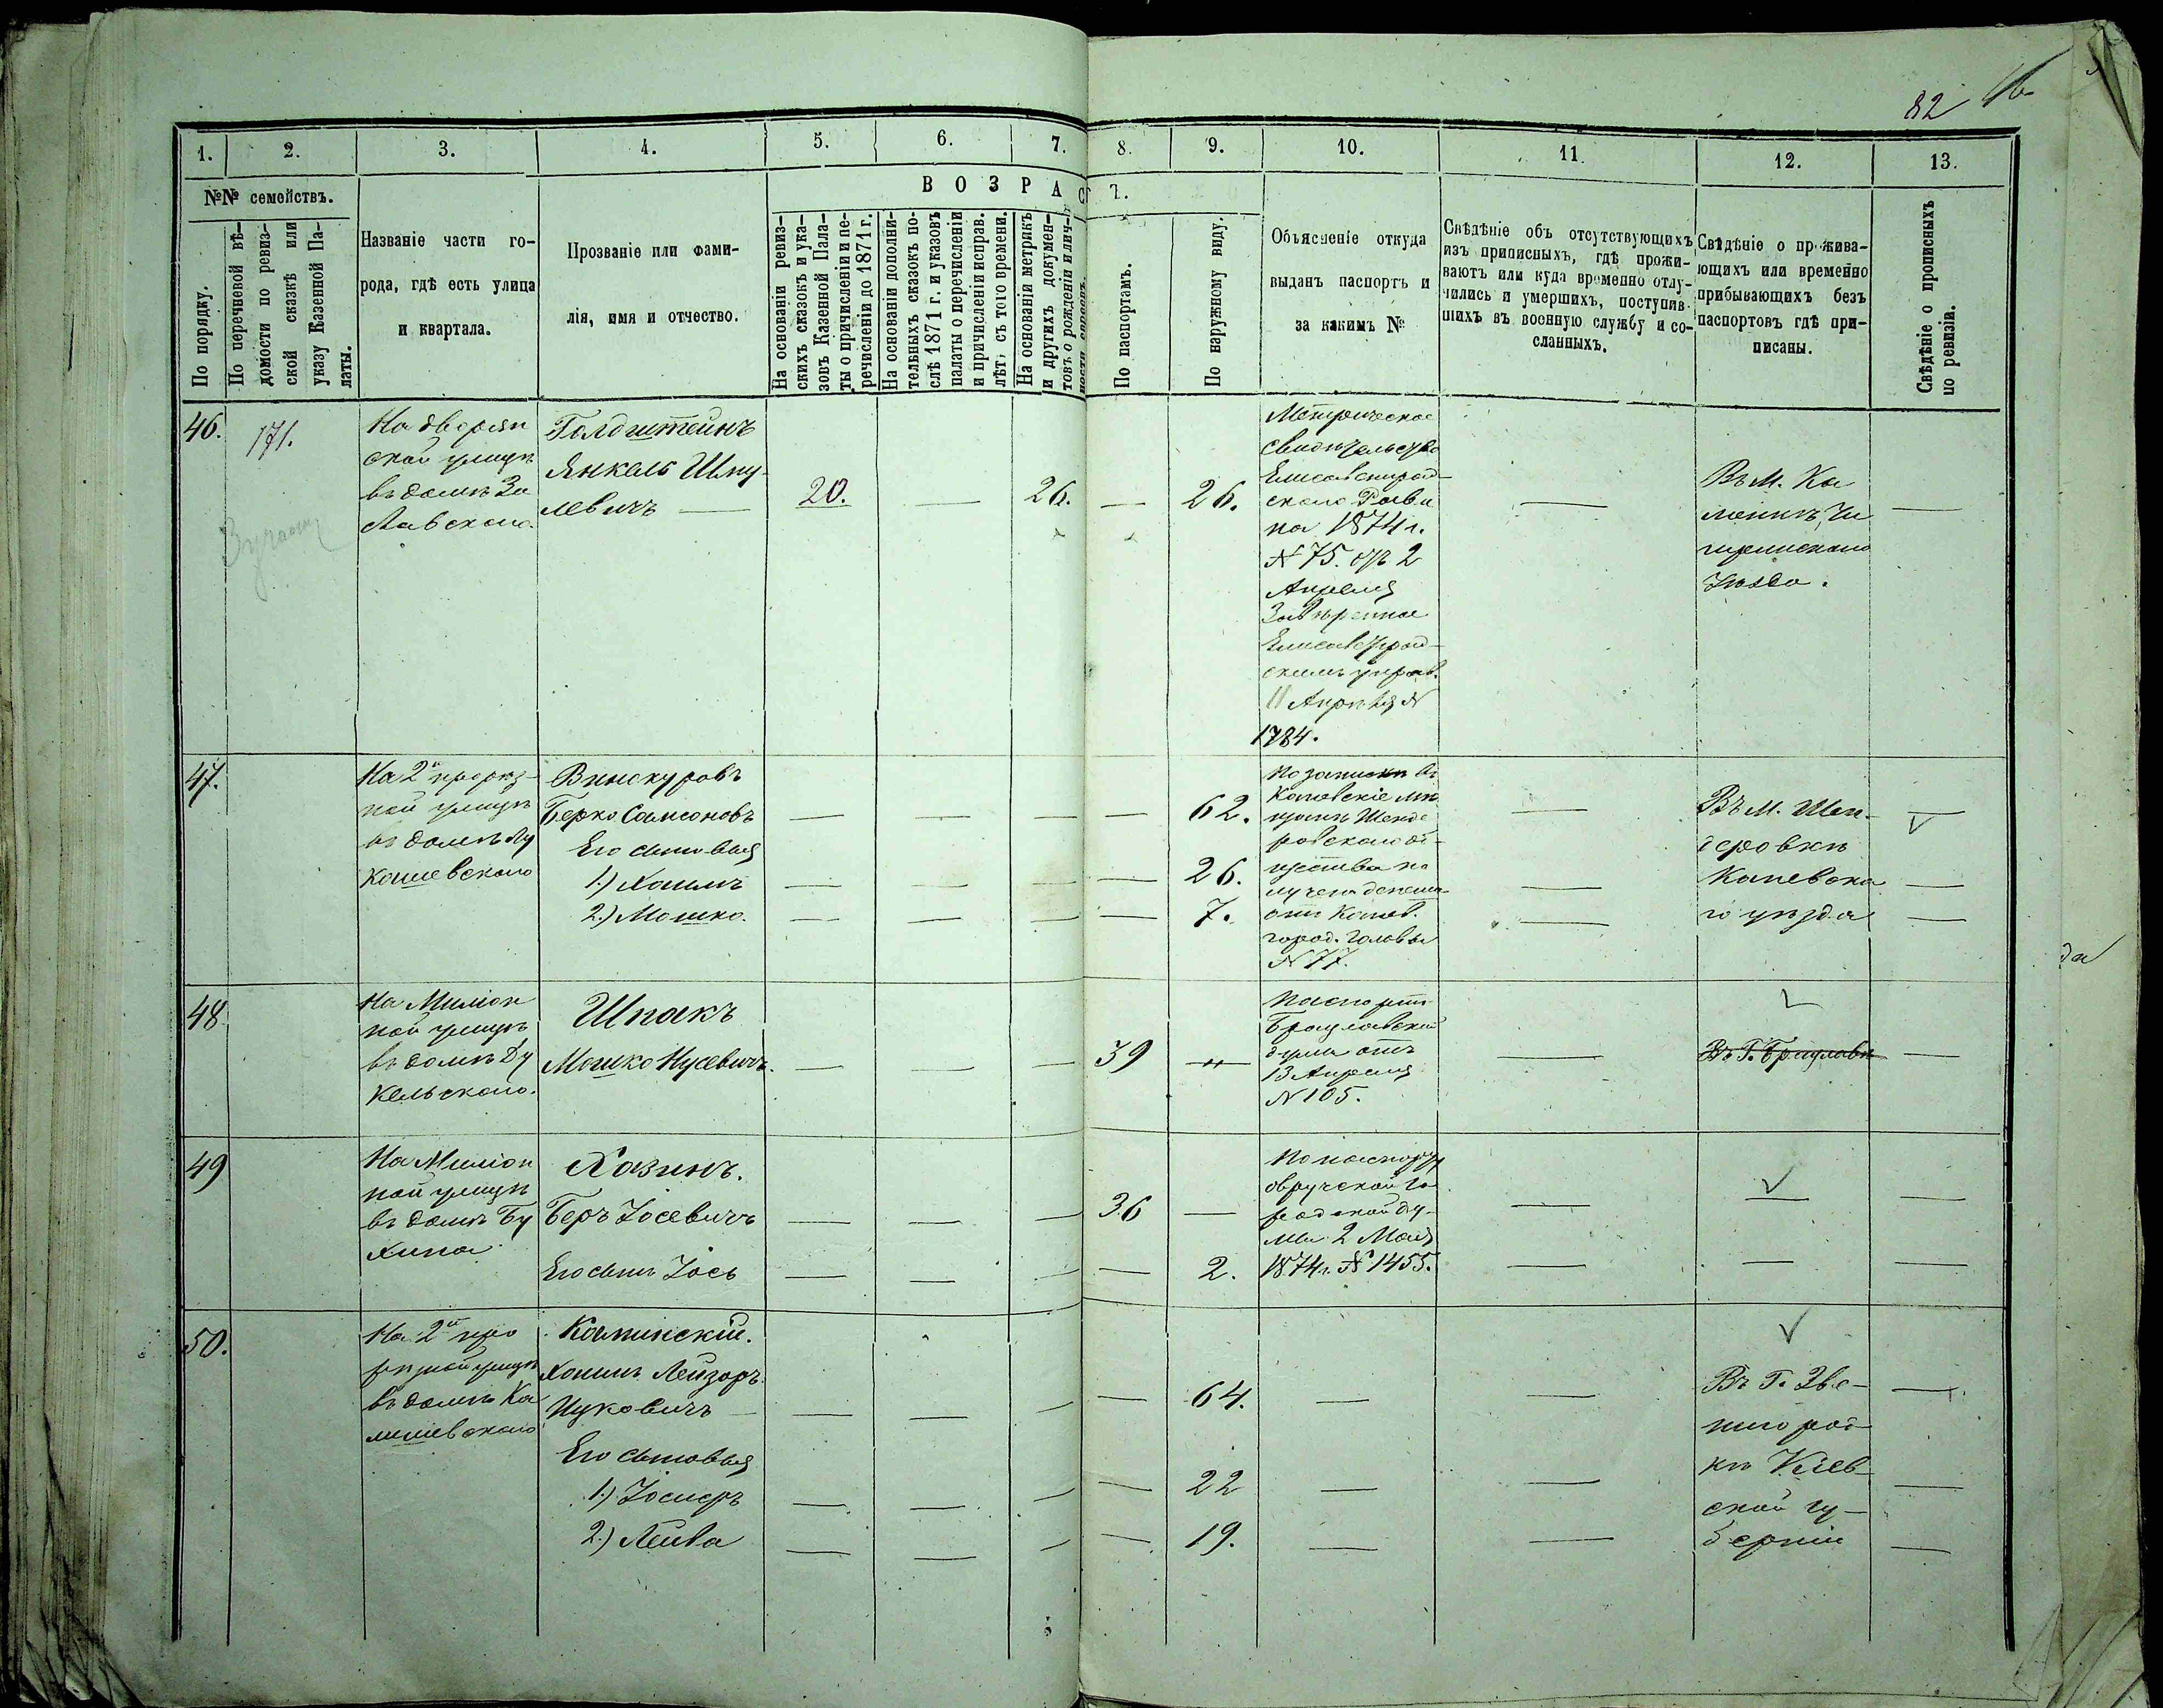 82
1.
2.
3.
4.
5.
6.
7.
8.
9.
10.
11.
12.
13.
№№ семействъ.
В О З Р А С Т.
По порядку.
По перечневой вѣ-
домости по ревиз-
ской сказкѣ или
указу Казенной Па-
латы.
Названіе части го-
рода, гдѣ есть улица
и квартала.
Прозваніе или фами-
лія, имя и отчество.
На основаніи ревиз-
скихъ сказокъ и ука-
зовъ Казенной Пала-
ты о причисленіи и пе-
речисленіи до 1871 г.
На основаніи дополни-
тельныхъ сказокъ по-
слѣ 1871 г. и указовъ
палаты о перечисленіи
и причисленіи исправ.
лѣтъ съ того времени.
На основаніи метрикъ
и другихъ докумен-
товъ о рожденіи и лич-
По паспортамъ.
По наружному виду.
Объясненіе откуда
выданъ паспортъ и
за какимъ №
Свѣдѣніе объ отсутствующихъ
изъ приписныхъ, гдѣ прожи-
ваютъ или куда временно отлу-
чились и умершихъ, поступив-
шихъ въ военную службу и со-
сланныхъ.
Свѣдѣніе о прожива-
ющихъ или временно
прибывающихъ безъ
паспортовъ гдѣ при-
писаны.
Свѣдѣніе о прописныхъ
по ревизіи.
46.
171.
На дворян
ской улицѣ
въ домѣ За
славскаго.
Голдштейнъ
Янкель Шму-
левичъ —
20.
—
26.
—
26.
Метрическое
свидѣтельство
Елисаветград-
скаго Равина
на 1874 г.
№ 75. отъ 2
Апреля
Завѣренное
Елисаветград-
скимъ управ.
11 Апрѣля №
1784.
—
Въ М. Ка
менкѣ, Чи
гиринскаго
Уѣзда.
—
47.
На 2й прорѣз-
ной улицѣ
въ домѣ Лу
кашевскаго
Винокуровъ
Берко Самсоновъ
Его сыновья
1.) Хаимъ
2.) Мошко.
62.
26.
7.
Каневскіе мѣ
щане Шенде
ровскаго об-
щества по
лучена депеша
отъ Канев.
город. Головы
№ 77.
Въ М. Шен-
деровкѣ
Каневска
го уѣзда
48.
На Миліон
ной улицѣ
въ домѣ Ду
кельскаго.
Шпакъ
Мошко Нусевичъ.
39
Паспортъ
Брацлавской
думы отъ
13 Апреля
№ 105.
Въ Г. Брацлавѣ
49
На Миліон
ной улицѣ
въ домѣ Бу
хина
Хазинъ.
Беръ Іосевичъ
Его сынъ Іось
36
2.
По паспорту
овручской го
родской ду-
мы 2 Мая
1874 г. № 1455.
50.
На 2й про
рѣзной улицѣ
въ домѣ Ка
лишевскаго
Каминскій.
Хаимъ Лейзоръ
Ицковичъ
Его сыновья
1.) Іосифъ
2.) Лейба
64.
22
19.
Въ Г. Зве-
нигород-
кѣ Кіев-
ской гу-
берніи
да